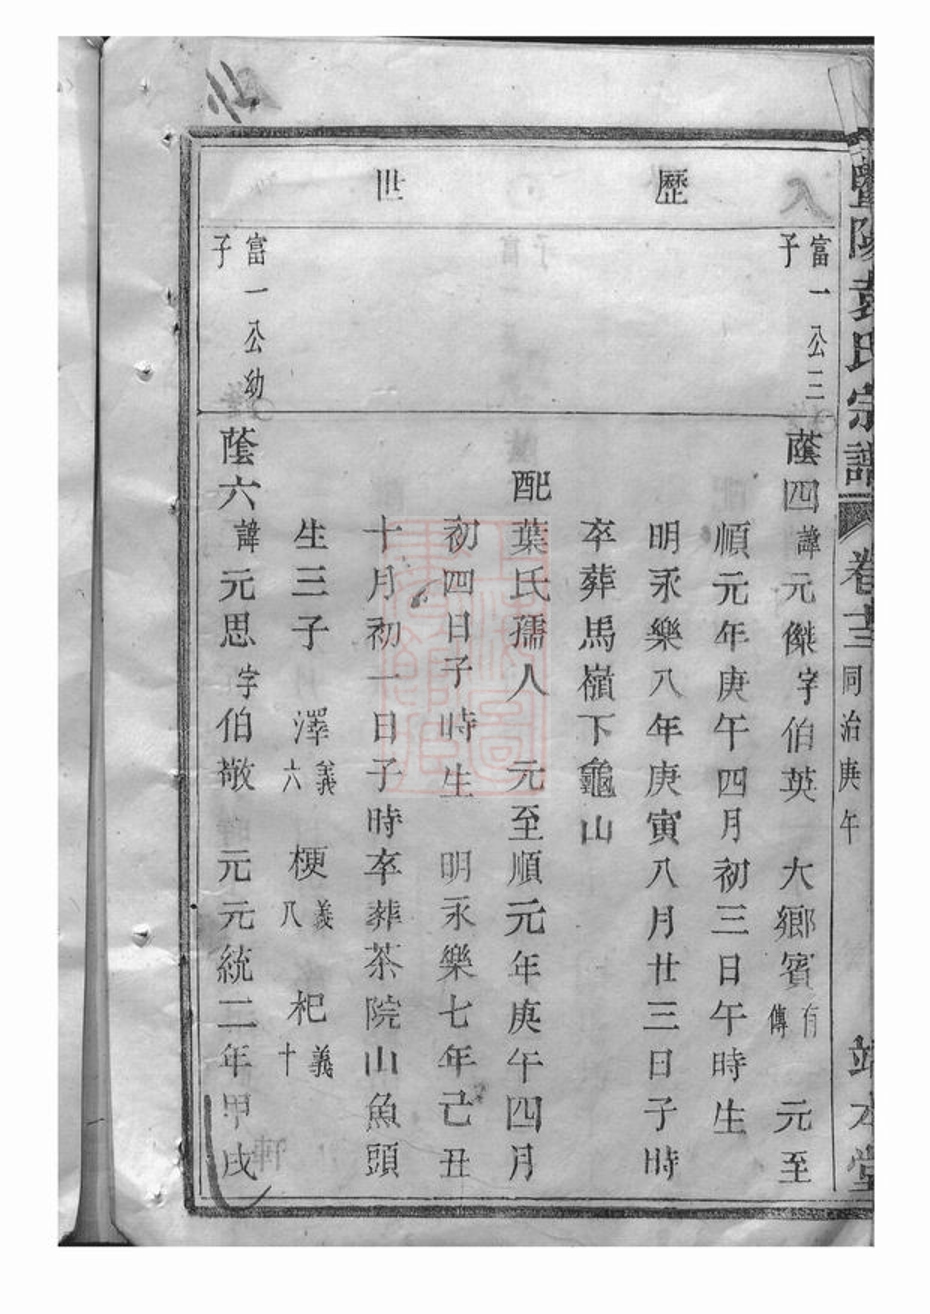 暨陽袁氏宗譜
卷十三
同治庚午
靖本堂
歷世
富一公三
子
蔭四諱元傑字伯英 大鄉賓有傳 元至
順元年庚午四月初三日午時生
明永樂八年庚寅八月廿三日子時
卒葬馬嶺下龜山
配葉氏孺人 元至順元年庚午四月
初四日子時生 明永樂七年己丑
十月初一日子時卒葬茶院山魚頭
生三子 澤義六 梗義八 杞義十
富一公幼
子
蔭六諱元思字伯敬 元元統二年甲戌